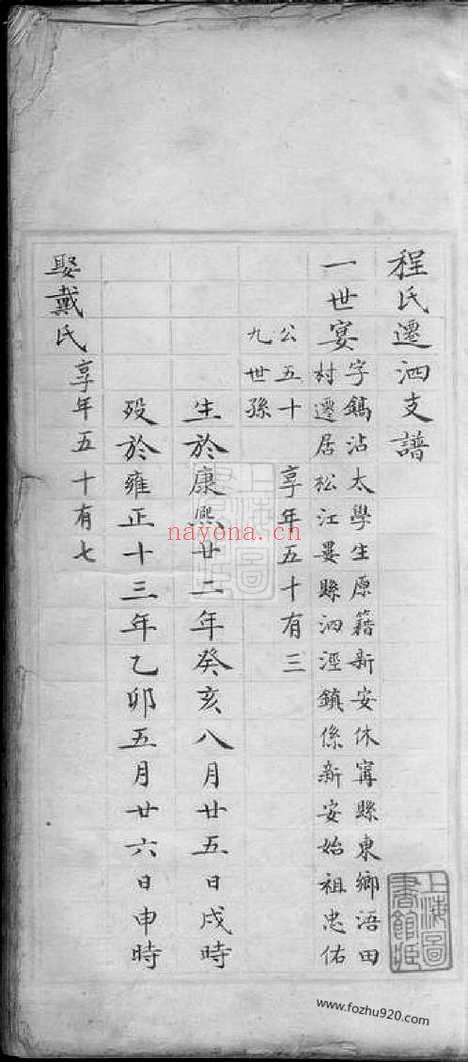 程氏遷泗支譜
一世宴
字鎷沾太學生原籍新安休寧縣東鄉浯田
村遷居松江婁縣泗涇鎮係新安始祖忠佑
公五十
九世孫
享年五十有三
生於康熙廿二年癸亥八月廿五日戌時
歿於雍正十三年乙卯五月廿六日申時
娶戴氏享年五十有七
上海圖
書館藏
上海圖
書館藏
nayona.cn
www.fozhu920.com